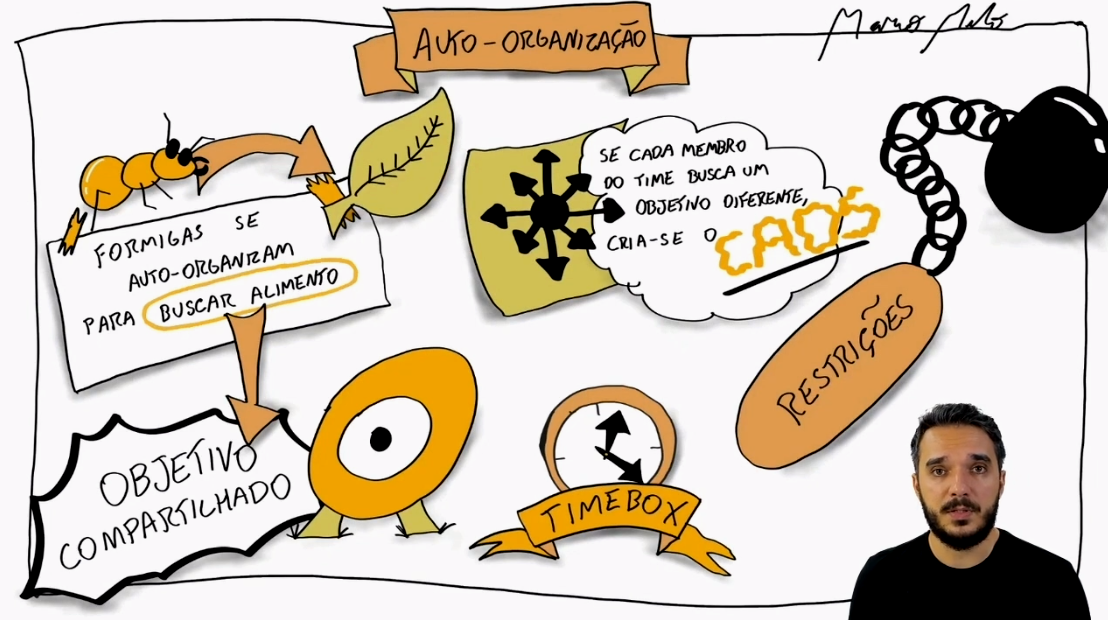 AUTO-ORGANIZAÇÃO
FORMIGAS SE
AUTO-ORGANIZAM
PARA BUSCAR ALIMENTO
SE CADA MEMBRO
DO TIME BUSCA UM
OBJETIVO DIFERENTE,
CRIA-SE O CAOS
RESTRIÇÕES
OBJETIVO
COMPARTILHADO
TIMEBOX